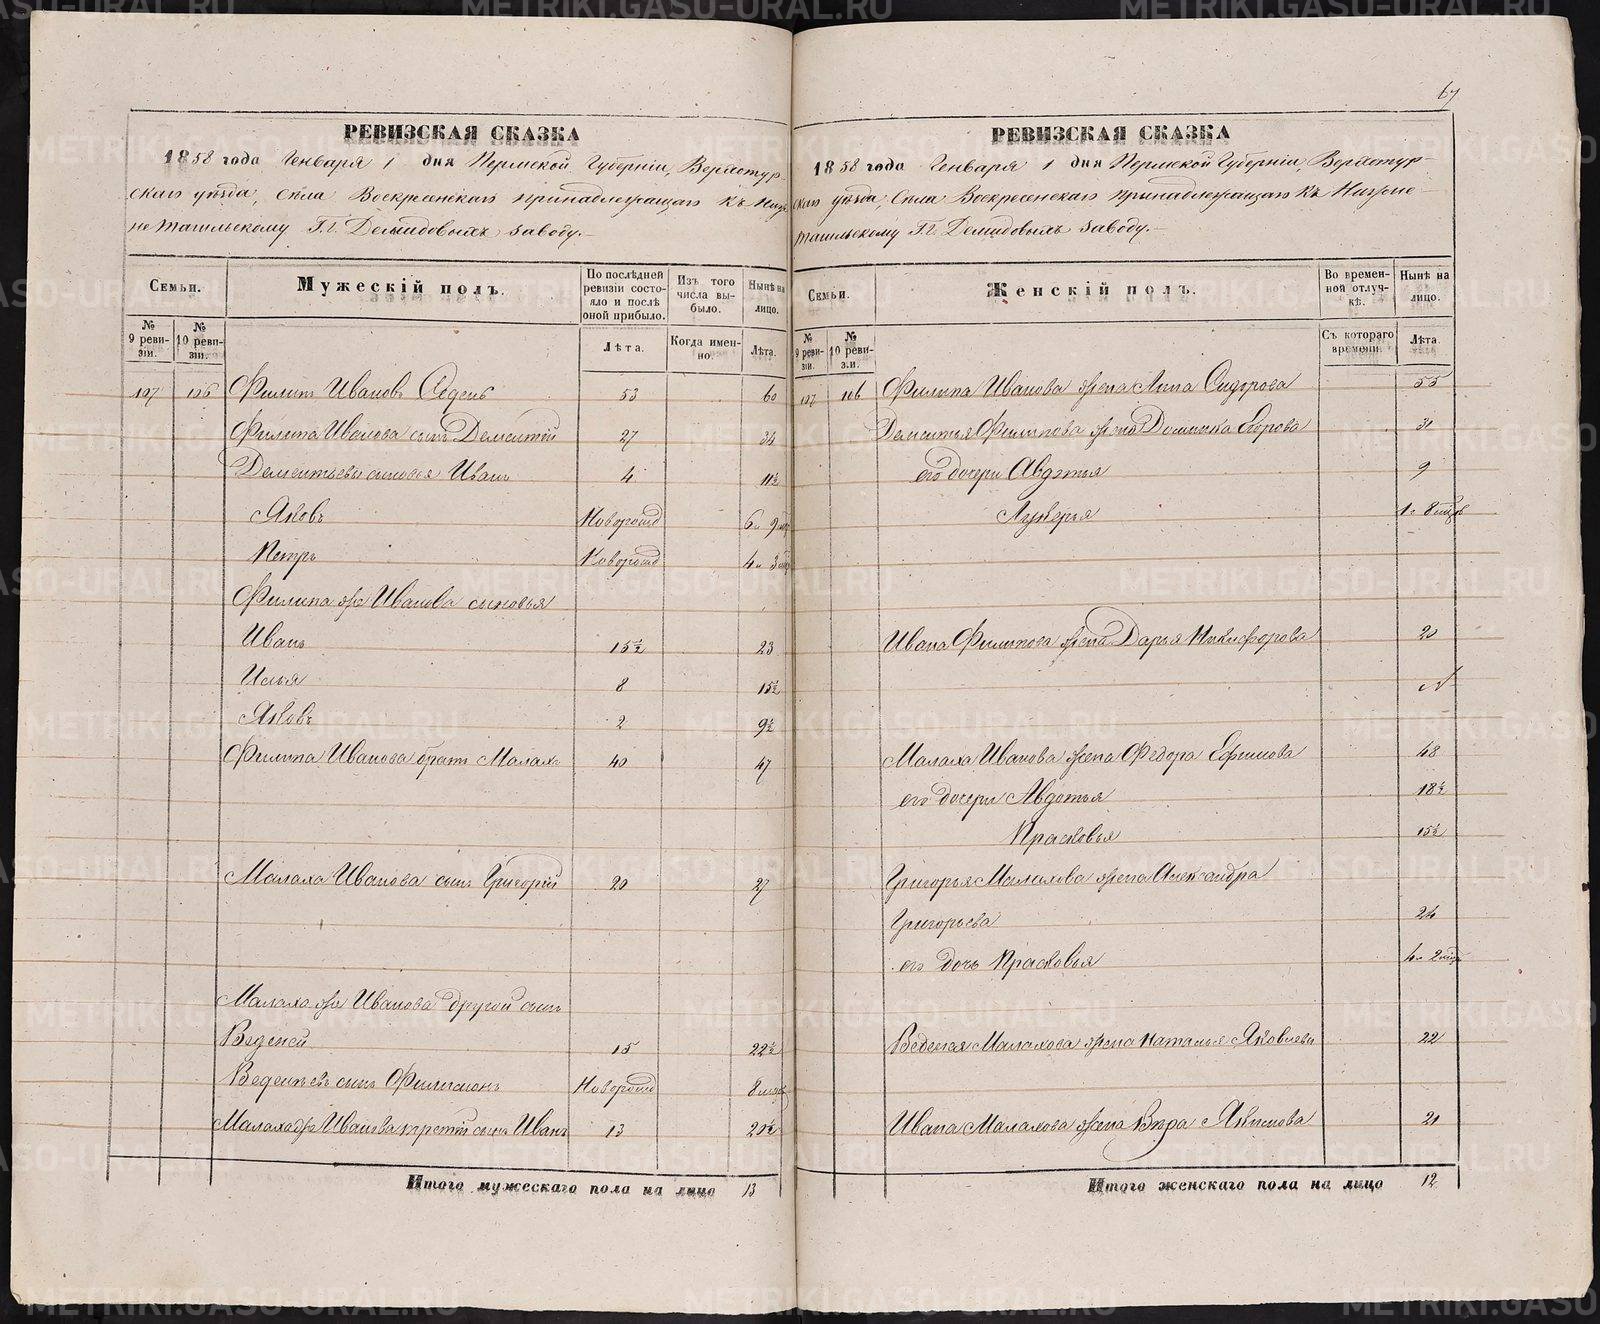 67
РЕВИЗСКАЯ СКАЗКА
1858 года Генваря 1 дня Пермской Губерніи, Верхотур-
скаго уѣзда, Села Воскресенскаго принадлежащаго Къ Ниж-
не тагильскому Г.г. Демидовыхъ Заводу.
Семьи.
Мужескій полъ.
По послѣдней ревизіи состояло и послѣ оной прибыло.
Изъ того числа выбыло.
Нынѣ на лицо.
№ 9 ревизіи.
№ 10 ревизіи.
Лѣта.
Когда именно.
Лѣта.
107 106 Филипъ Ивановъ Седень 53 60
Филипа Иванова сынъ Дементей 27 34
Дементьевы сыновья Иванъ 4 11½
Яковъ Новорожд 6 и 9 мѣс
Петръ Новорожд 4 и 3 мѣс
Филипа же Иванова сыновья
Иванъ 15½ 23
Илья 8 15½
Яковъ 2 9½
Филипа Иванова братъ Малахъ 40 47
Малаха Иванова сынъ Григорій 20 27
Малаха же Иванова другой сынъ
Веденей 15 22½
Веденѣевъ сынъ Филимонъ Новорожд 8 мѣсяц
Малаха же Иванова третій сынъ Иванъ 13 20½
Итого мужескаго пола на лицо 13
РЕВИЗСКАЯ СКАЗКА
1858 года Генваря 1 дня Пермской Губерніи, Верхотур-
скаго уѣзда, Села Воскресенскаго принадлежащаго Къ Нижне-
тагильскому Г.г. Демидовыхъ Заводу.
Семьи.
Женскій полъ.
Во временной отлучкѣ.
Нынѣ на лицо.
№ 9 ревизіи.
№ 10 ревизіи.
Съ котораго времени.
Лѣта.
107 106 Филипа Иванова жена Анна Сидорова 55
Дементья Филипова жена Домника Егорова 31
его дочери Авдотья 9
Лукерья 1 и 8 мѣсяцов
Ивана Филипова жена Дарья Никифорова 20
Малаха Иванова жена Федора Ефимова 48
его дочери Авдотья 18½
Прасковья 15½
Григорья Малахова жена Александра
Григорьева 24
его дочь Прасковья 4 и 2 мѣс
Веденея Малахова жена Наталья Яковлева 22
Ивана Малахова жена Вѣра Якимова 21
Итого женскаго пола на лицо 12
METRIKI.GASO-URAL.RU